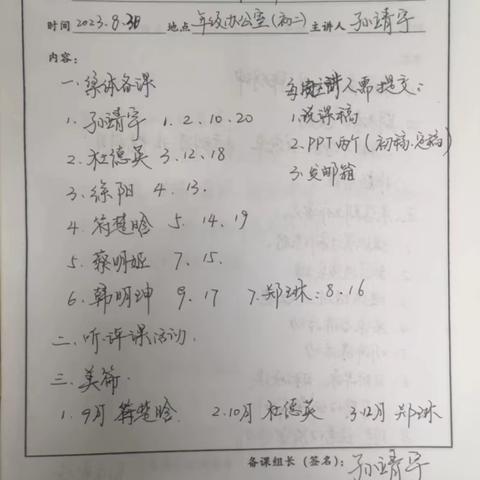 时间 2023.8.30 地点 年级办公室(初二) 主讲人 孙靖宇
内容:
一、集体备课
主讲人需提交:
1. 孙靖宇 1. 2. 10. 20
1.说课稿
2. 杜德英 3. 12. 18
2.PPT两个(初稿.定稿)
3. 徐阳 4. 13.
3.发邮箱
4. 符楚晗 5. 14. 19
5. 蔡明娅 7. 15.
6. 韩明珅 9. 17 7.郑玉琳:8.16
二、听评课活动.
三、美篇.
1. 9月 符楚晗. 2.10月 杜德英 3.12月 郑玉琳
备课组长(签名): 孙靖宇